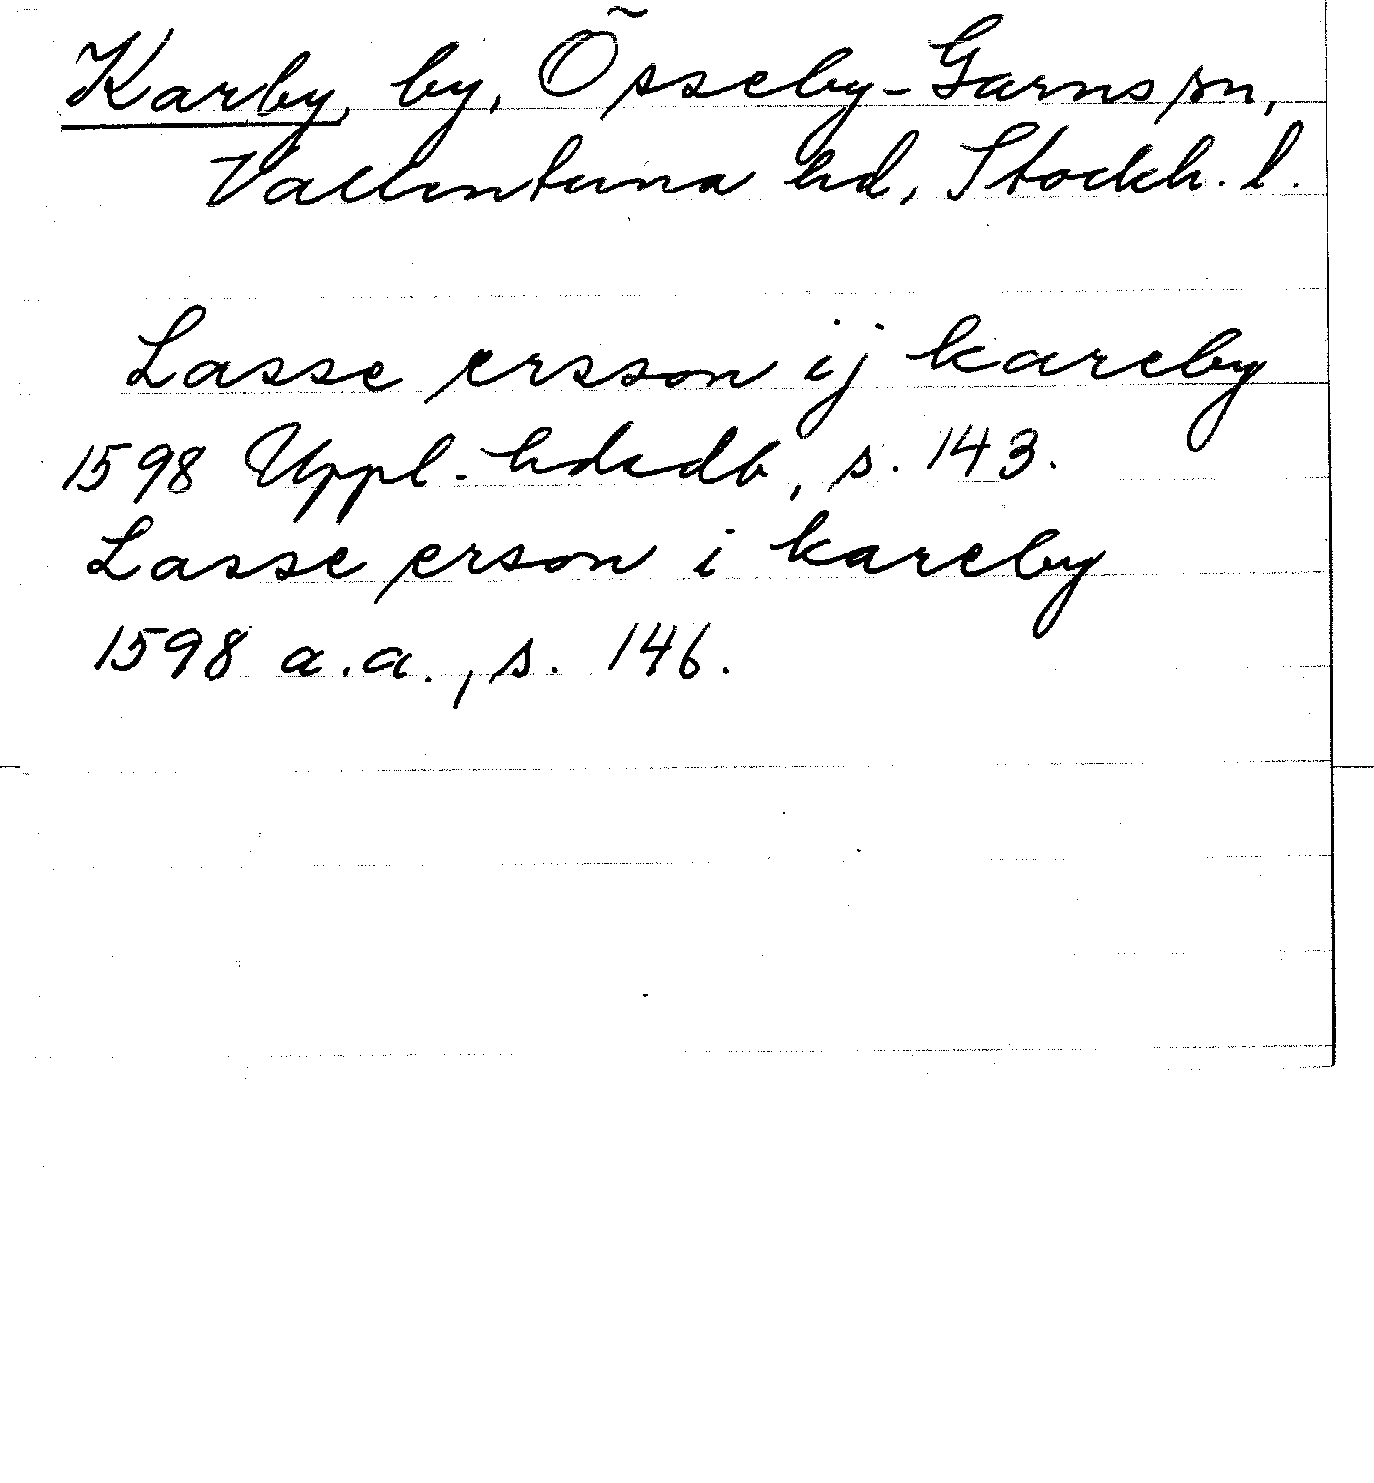 Karby, by, Össeby-Garns sn,
Vallentuna hd, Stockh. l.
Lasse persson ij kareby
1598 Uppl. hdsdb, s. 143.
Lasse person i kareby
1598 a.a., s. 146.